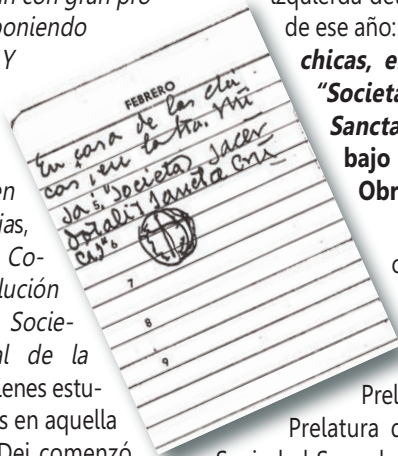 con gran pro
poniendo
Y
en
Co-
lución
Socie-
al de la
lenes estu-
s en aquella
Dei comenzó
FEBRERO
En casa de las chi
cas, en la Sta. Mi
sa: 5 "Societas Sacer
dotalis Sanctae Cru
cis" 6
7
8
9
izquierda
de ese año:
chicas, e
“Societa
Sancta
bajo
Obr
c
Prel
Prelatura d